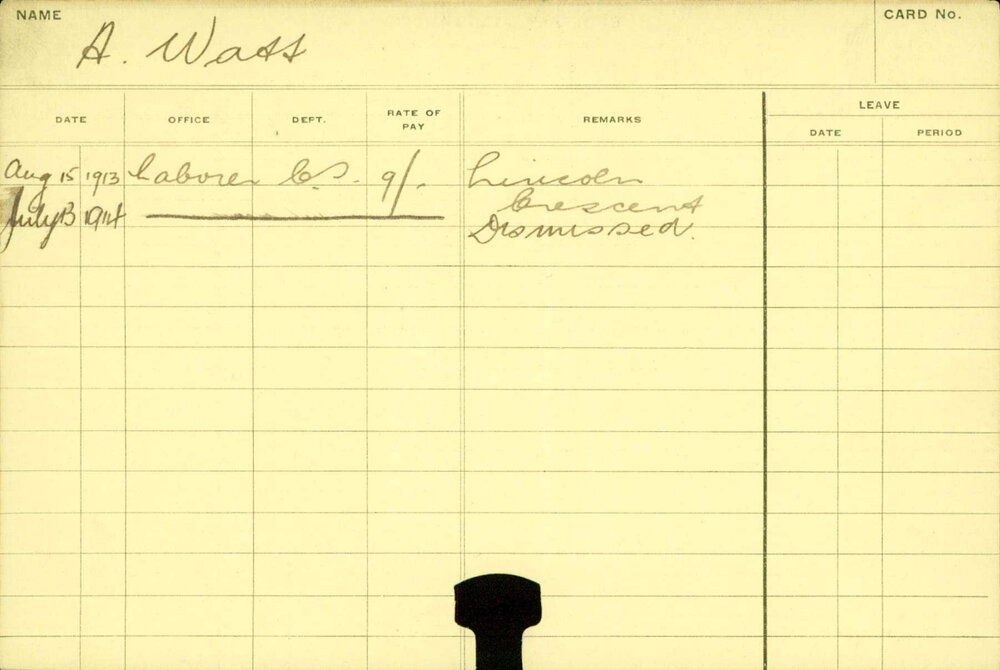 NAME
CARD No.
A. Watt
DATE OFFICE DEPT. RATE OF PAY REMARKS LEAVE
DATE PERIOD
Aug 15 1913 Laborer C.S. 9/- Lincoln
Crescent
July 13 1914 Dismissed.